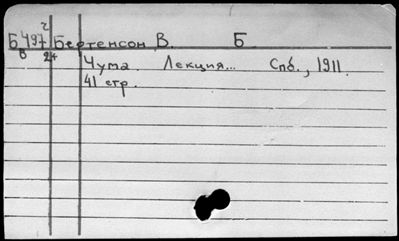 ч
Б497 Бертенсон В. Б
в 24
Чума Лекция... Спб., 1911.
41 стр.